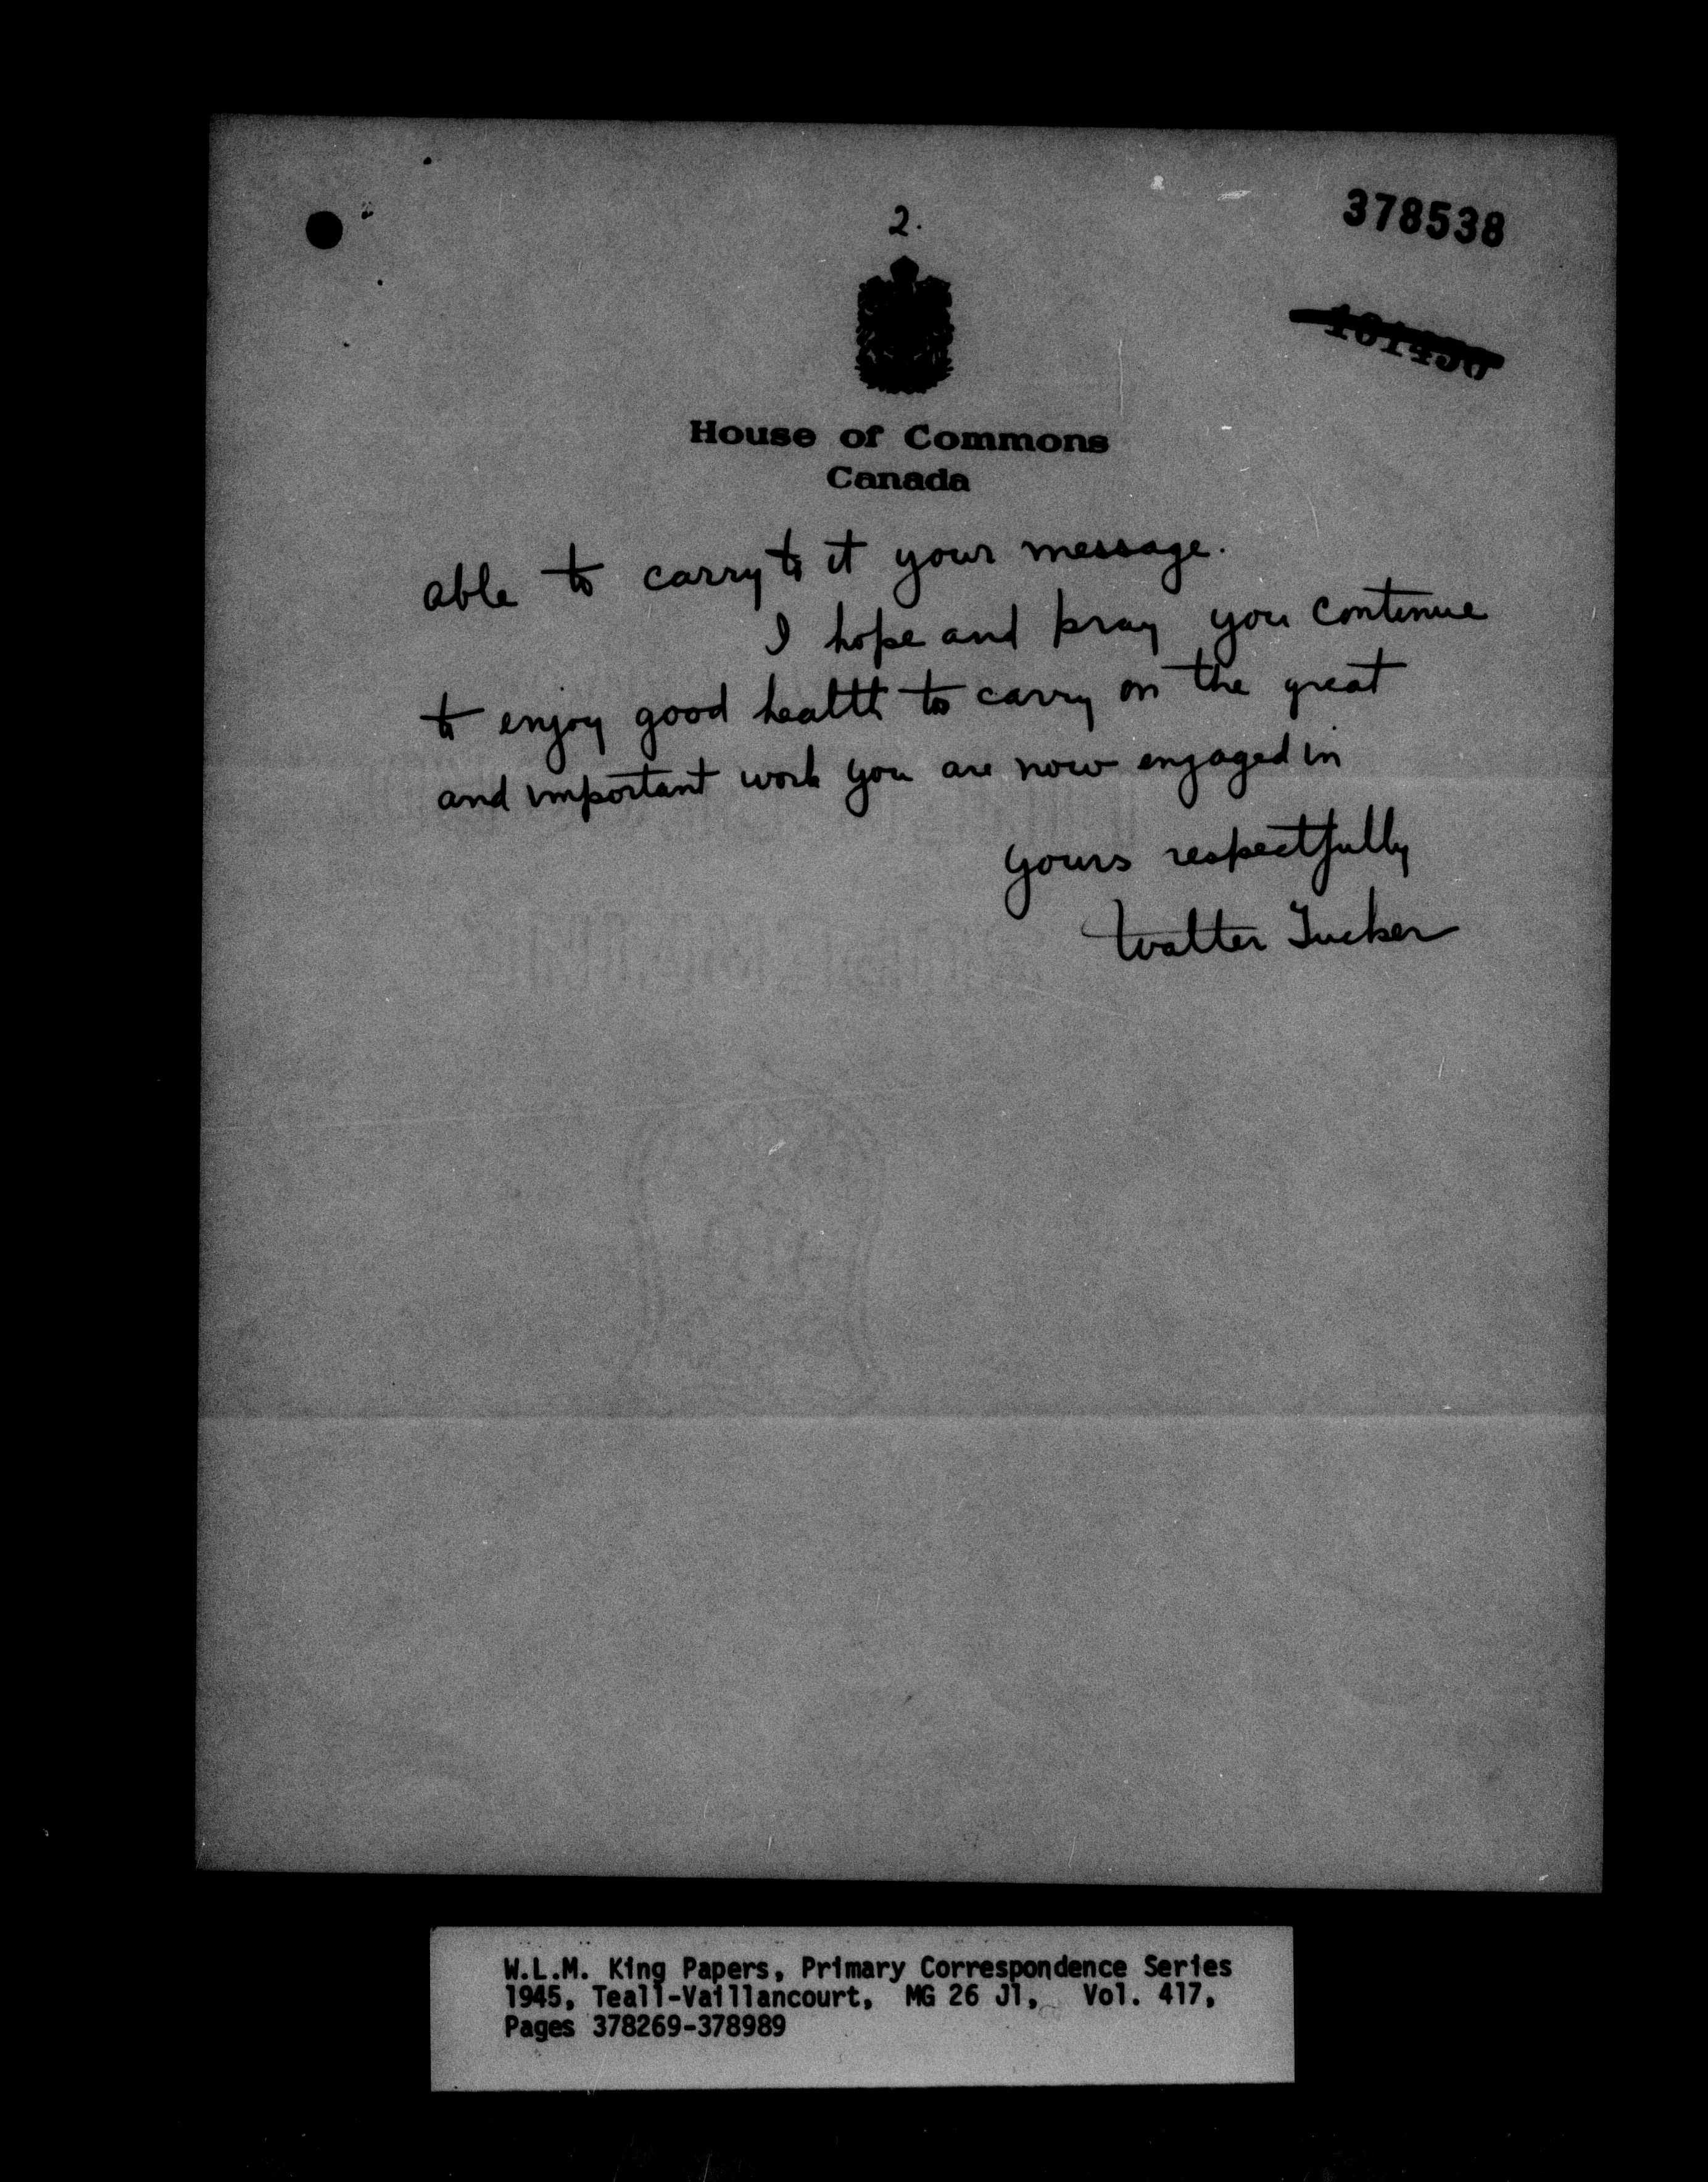 2.
378538
House of Commons
Canada
able to carry to it your message.
I hope and pray you continue
to enjoy good health to carry on the great
and important work you are now engaged in
Yours respectfully
Walter Tucker
W.L.M. King Papers, Primary Correspondence Series
1945, Teall-Vaillancourt, MG 26 J1, Vol. 417,
Pages 378269-378989